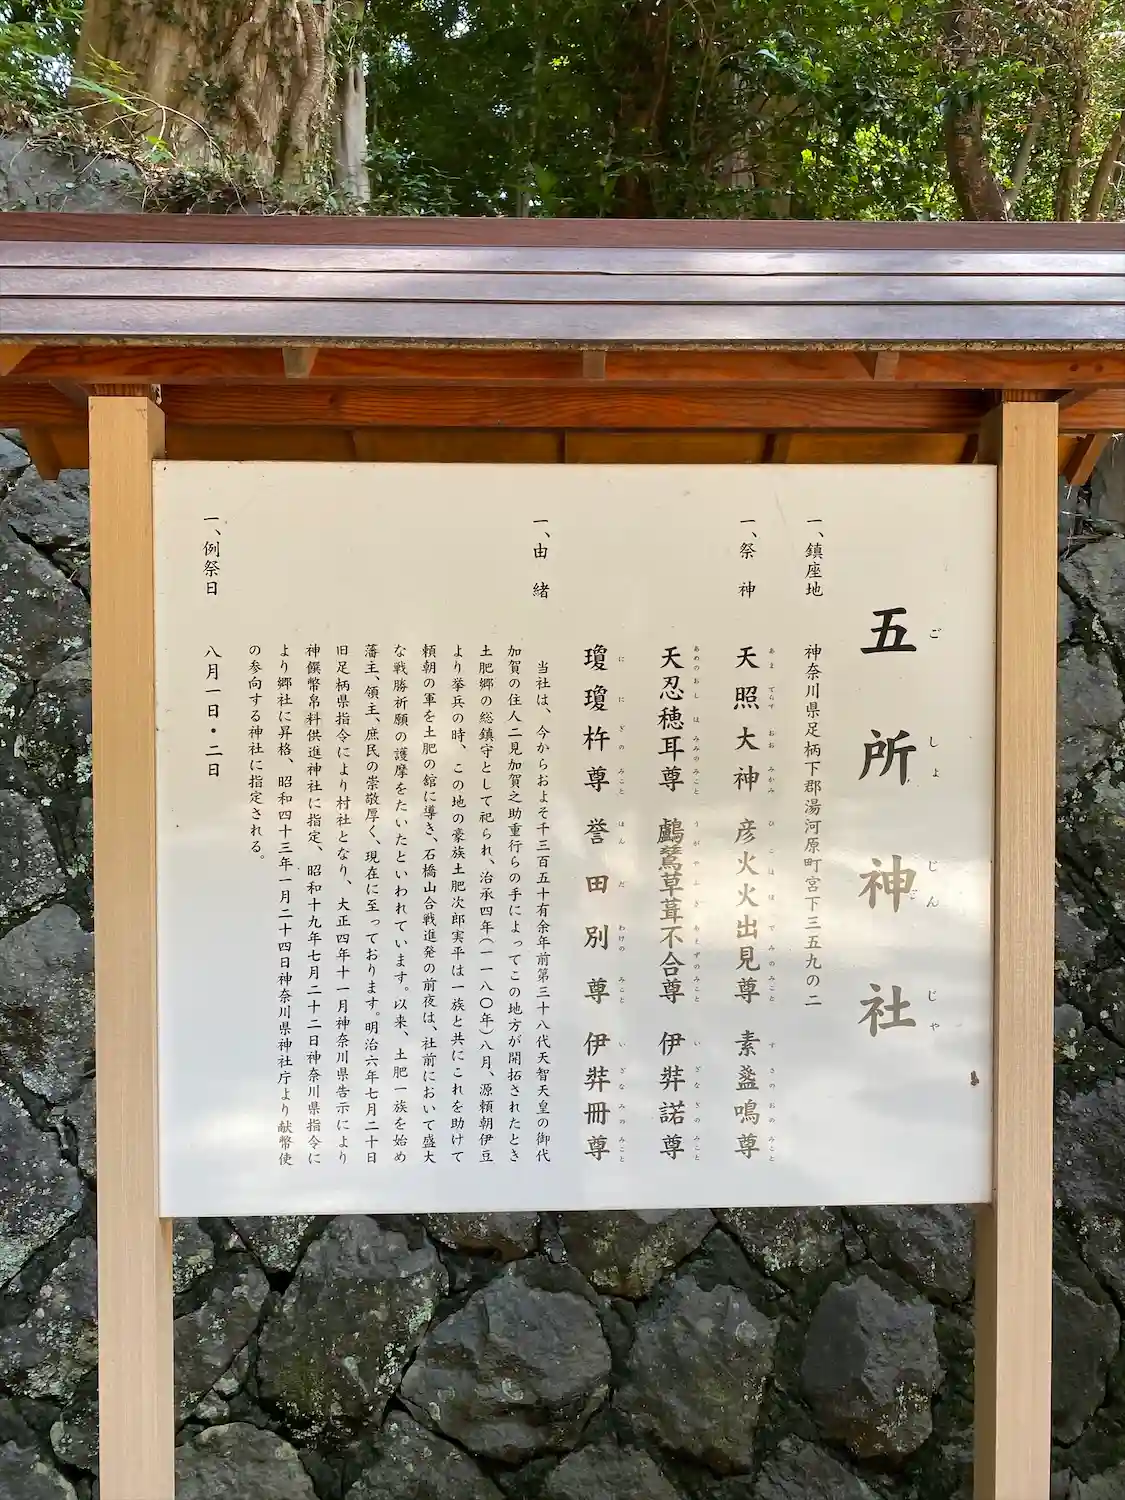 五所神社
ごしょじんじゃ
一、鎮座地 神奈川県足柄下郡湯河原町宮下三五九の二
一、祭神 天照大神 彦火火出見尊 素盞鳴尊
あまてらすおおみかみ ひこほほでみのみこと すさのおのみこと
天忍穂耳尊 鸕鶿草葺不合尊 伊弉諾尊
あめのおしほみみのみこと うがやふきあえずのみこと いざなぎのみこと
瓊瓊杵尊 誉田別尊 伊弉冊尊
ににぎのみこと ほんだわけのみこと いざなみのみこと
一、由緒 当社は、今からおよそ千三百五十有余年前第三十八代天智天皇の御代
加賀の住人二見加賀之助重行らの手によってこの地方が開拓されたとき
土肥郷の総鎮守として祀られ、治承四年(一一八〇年)八月、源頼朝伊豆
より挙兵の時、この地の豪族土肥次郎実平は一族と共にこれを助けて
頼朝の軍を土肥の舘に導き、石橋山合戦進発の前夜は、社前において盛大
な戦勝祈願の護摩をたいたといわれています。以来、土肥一族を始め
藩主、領主、庶民の崇敬厚く、現在に至っております。明治六年七月二十日
旧足柄県指令により村社となり、大正四年十一月神奈川県告示により
神饌幣帛料供進神社に指定、昭和十九年七月二十二日神奈川県指令に
より郷社に昇格、昭和四十三年一月二十四日神奈川県神社庁より献幣使
の参向する神社に指定される。
一、例祭日 八月一日・二日